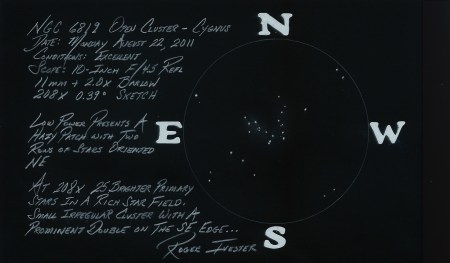 NGC 6819 Open Cluster - Cygnus
Date: Monday August 22, 2011
Conditions: Excellent
Scope: 10-Inch F/4.5 Refl
11mm + 2.0x Barlow
208x 0.39° Sketch
Low Power Presents A
Hazy Patch with Two
Rows of Stars Oriented
NE
At 208x 25 Brighter Primary
Stars In A Rich Star Field.
Small Irregular Cluster With A
Prominent Double on The SE Edge...
Roger Ivester
N
E
W
S